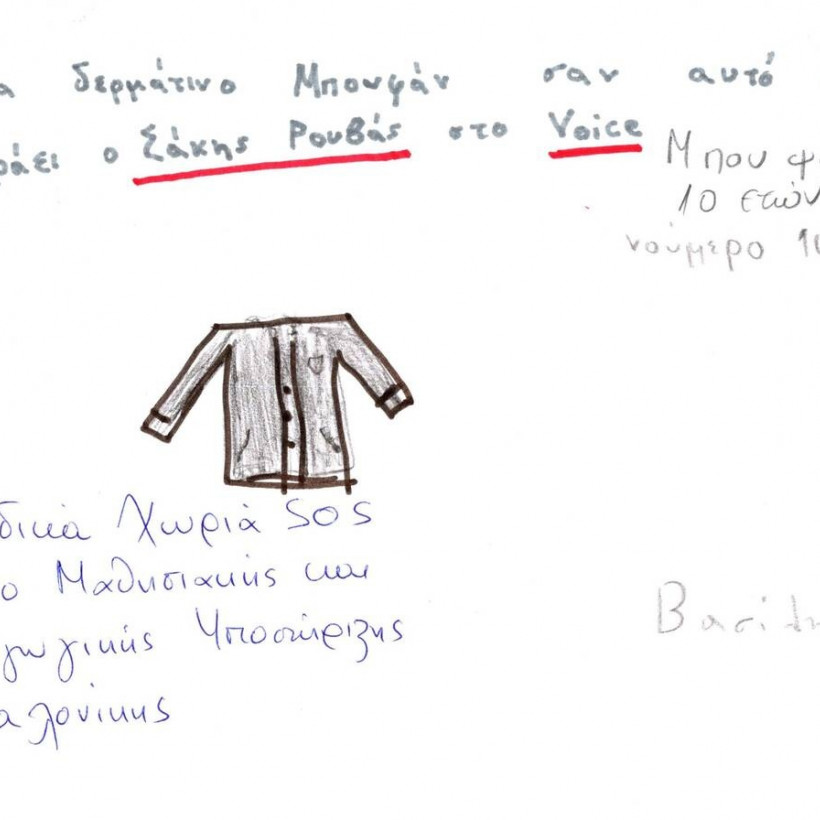 α δερμάτινο Μπουφάν σαν αυτό
ράει ο Σάκης Ρουβάς στο Voice
Μπουφ
10 ετών
νούμερο 10
δικά Χωριά SOS
ο Μαθησιακής και
γωγικής Υποστήριξης
αλονίκης
Βασίλη